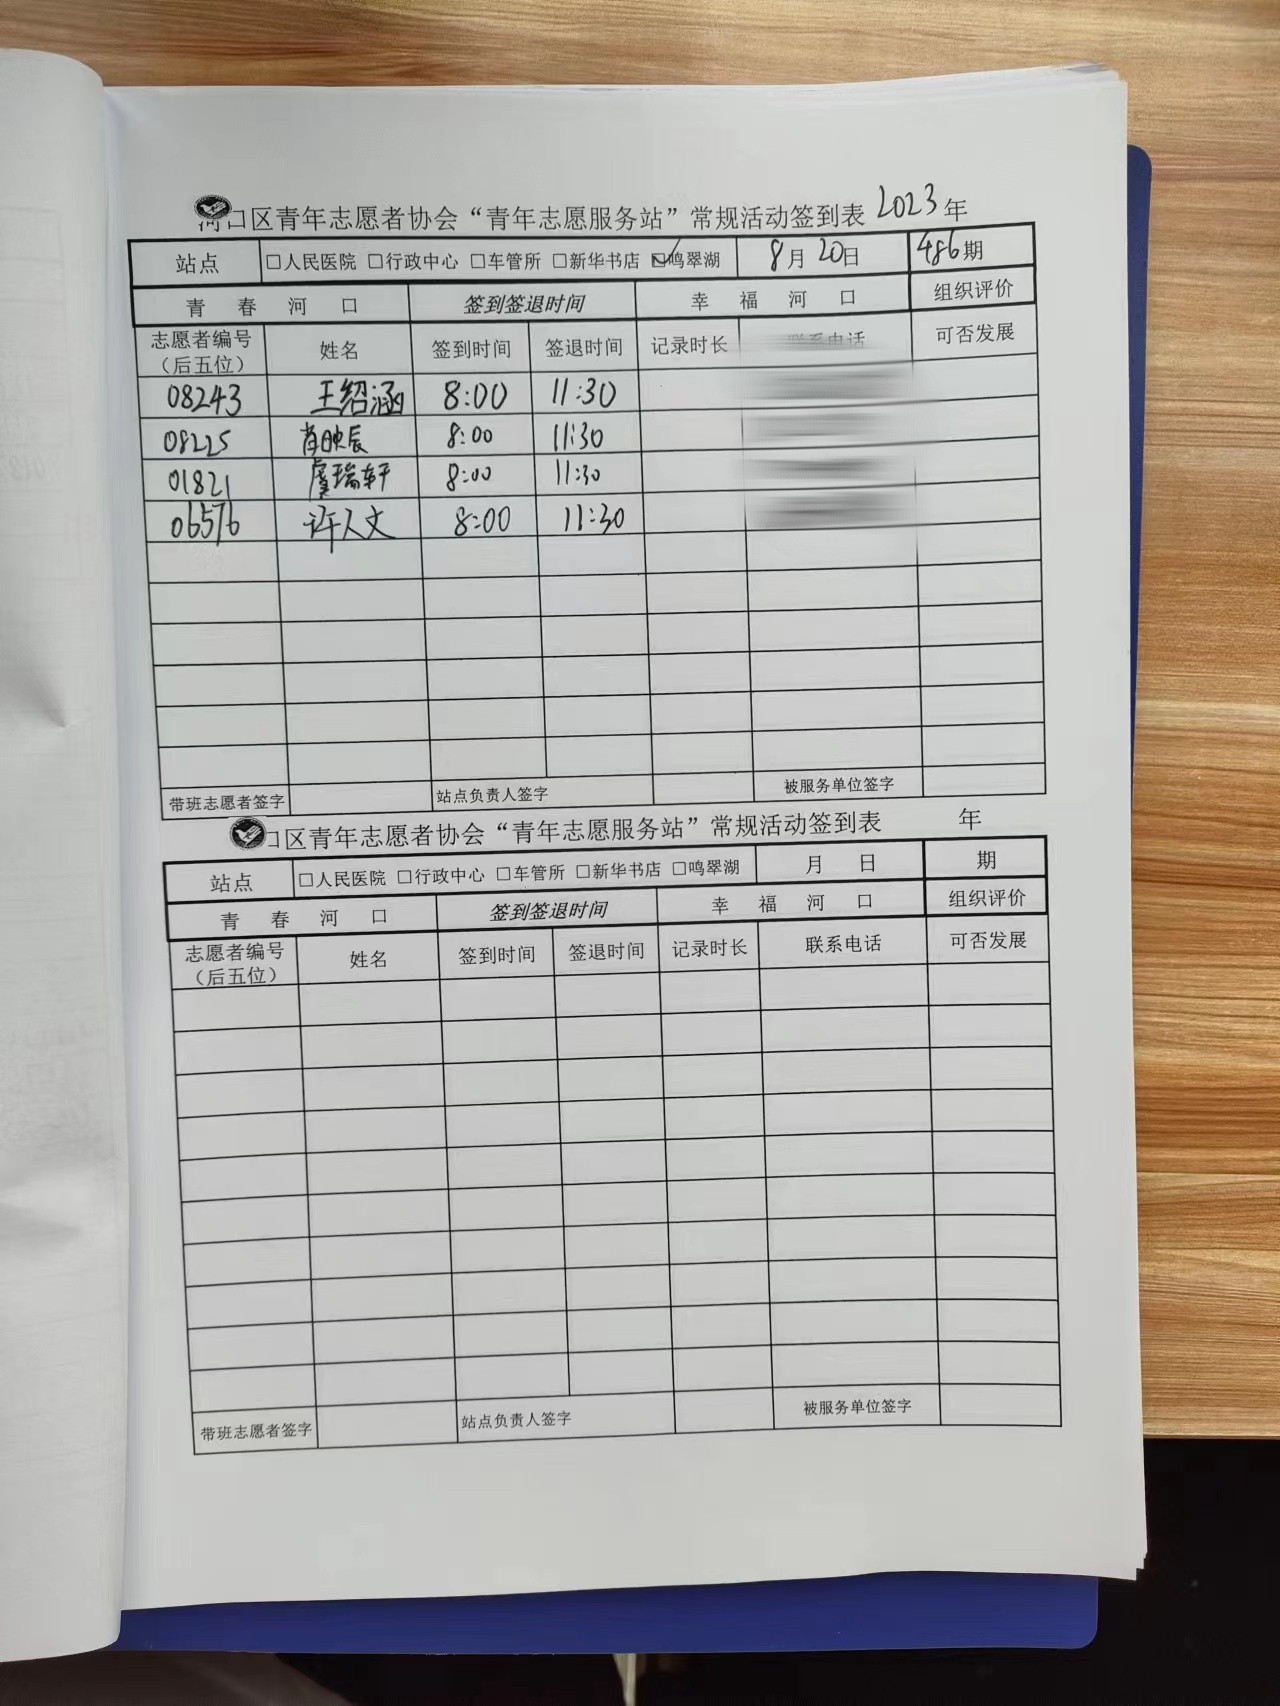 河口区青年志愿者协会“青年志愿服务站”常规活动签到表 2023年
站点 □人民医院 □行政中心 □车管所 □新华书店 ☑鸣翠湖 8月20日 486期
青春河口 签到签退时间 幸福河口 组织评价
志愿者编号（后五位） 姓名 签到时间 签退时间 记录时长 联系电话 可否发展
08243 王绍涵 8:00 11:30
08225 肖映辰 8:00 11:30
01821 虞瑞轩 8:00 11:30
06576 许人文 8:00 11:30
带班志愿者签字 站点负责人签字 被服务单位签字
口区青年志愿者协会“青年志愿服务站”常规活动签到表 年
站点 □人民医院 □行政中心 □车管所 □新华书店 □鸣翠湖 月 日 期
青春河口 签到签退时间 幸福河口 组织评价
志愿者编号（后五位） 姓名 签到时间 签退时间 记录时长 联系电话 可否发展
带班志愿者签字 站点负责人签字 被服务单位签字